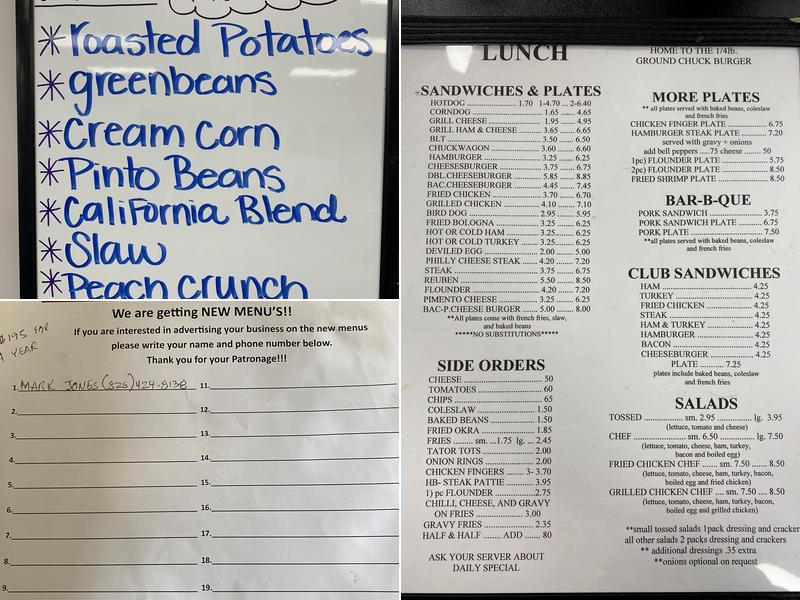 * roasted Potatoes
* greenbeans
* Cream Corn
* Pinto Beans
* California Blend
* Slaw
* Peach Crunch
We are getting NEW MENU'S!!
$195 FOR
A YEAR
If you are interested in advertising your business on the new menus
please write your name and phone number below.
Thank you for your Patronage!!!
1. MARK JONES (828) 424-8138
2.
3.
4.
5.
6.
7.
8.
9.
11.
12.
13.
14.
15.
16.
17.
18.
19.
LUNCH
SANDWICHES & PLATES
HOTDOG ... 1.70 1-4.70 ... 2-6.40
CORNDOG ... 1.65 ... 4.65
GRILL CHEESE ... 1.95 ... 4.95
GRILL HAM & CHEESE ... 3.65 ... 6.65
BLT ... 3.50 ... 6.50
CHUCKWAGON ... 3.60 ... 6.60
HAMBURGER ... 3.25 ... 6.25
CHEESESBURGER ... 3.75 ... 6.75
DBL.CHEESEBURGER ... 5.85 ... 8.85
BAC.CHEESEBURGER ... 4.45 ... 7.45
FRIED CHICKEN ... 3.70 ... 6.70
GRILLED CHICKEN ... 4.10 ... 7.10
BIRD DOG ... 2.95 ... 5.95
FRIED BOLOGNA ... 3.25 ... 6.25
HOT OR COLD HAM ... 3.25 ... 6.25
HOT OR COLD TURKEY ... 3.25 ... 6.25
DEVILED EGG ... 2.00 ... 5.00
PHILLY CHEESE STEAK ... 4.20 ... 7.20
STEAK ... 3.75 ... 6.75
REUBEN ... 5.50 ... 8.50
FLOUNDER ... 4.20 ... 7.20
PIMENTO CHEESE ... 3.25 ... 6.25
BAC-P.CHEESE BURGER ... 5.00 ... 8.00
**All plates come with french fries, slaw,
and baked beans
*****NO SUBSTITUTIONS*****
SIDE ORDERS
CHEESE ... 50
TOMATOES ... 60
CHIPS ... 65
COLESLAW ... 1.50
BAKED BEANS ... 1.50
FRIED OKRA ... 1.85
FRIES ... sm. ...1.75 lg. ... 2.45
TATOR TOTS ... 2.00
ONION RINGS ... 2.00
CHICKEN FINGERS ... 3- 3.70
HB- STEAK PATTIE ... 3.95
1) pc FLOUNDER ... 2.75
CHILLI, CHEESE, AND GRAVY
ON FRIES ... 3.00
GRAVY FRIES ... 2.35
HALF & HALF ... ADD ... 80
ASK YOUR SERVER ABOUT
DAILY SPECIAL
HOME TO THE 1/4lb.
GROUND CHUCK BURGER
MORE PLATES
** all plates served with baked beans, coleslaw
and french fries
CHICKEN FINGER PLATE ... 6.75
HAMBURGER STEAK PLATE ... 7.20
served with gravy + onions
add bell peppers .....75 cheese ..... 50
1pc) FLOUNDER PLATE ... 5.75
2pc) FLOUNDER PLATE ... 8.50
FRIED SHRIMP PLATE ... 8.50
BAR-B-QUE
PORK SANDWICH ... 3.75
PORK SANDWICH PLATE ... 6.75
PORK PLATE ... 7.50
**all plates served with baked beans, coleslaw
and french fries
CLUB SANDWICHES
HAM ... 4.25
TURKEY ... 4.25
FRIED CHICKEN ... 4.25
STEAK ... 4.25
HAM & TURKEY ... 4.25
HAMBURGER ... 4.25
BACON ... 4.25
CHEESEBURGER ... 4.25
PLATE ... 7.25
plates include baked beans, coleslaw
and french fries
SALADS
TOSSED ... sm. 2.95 ... lg. 3.95
(lettuce, tomato and cheese)
CHEF ... sm. 6.50 ... lg. 7.50
(lettuce, tomato, cheese, ham, turkey,
bacon and boiled egg)
FRIED CHICKEN CHEF ... sm. 7.50 ... 8.50
(lettuce, tomato, cheese, ham, turkey, bacon,
boiled egg and fried chicken)
GRILLED CHICKEN CHEF .... sm. 7.50 .... 8.50
(lettuce, tomato, cheese, ham, turkey, bacon,
boiled egg and grilled chicken)
**small tossed salads 1pack dressing and cracker
all other salads 2 packs dressing and crackers
** additional dressings .35 extra
**onions optional on request